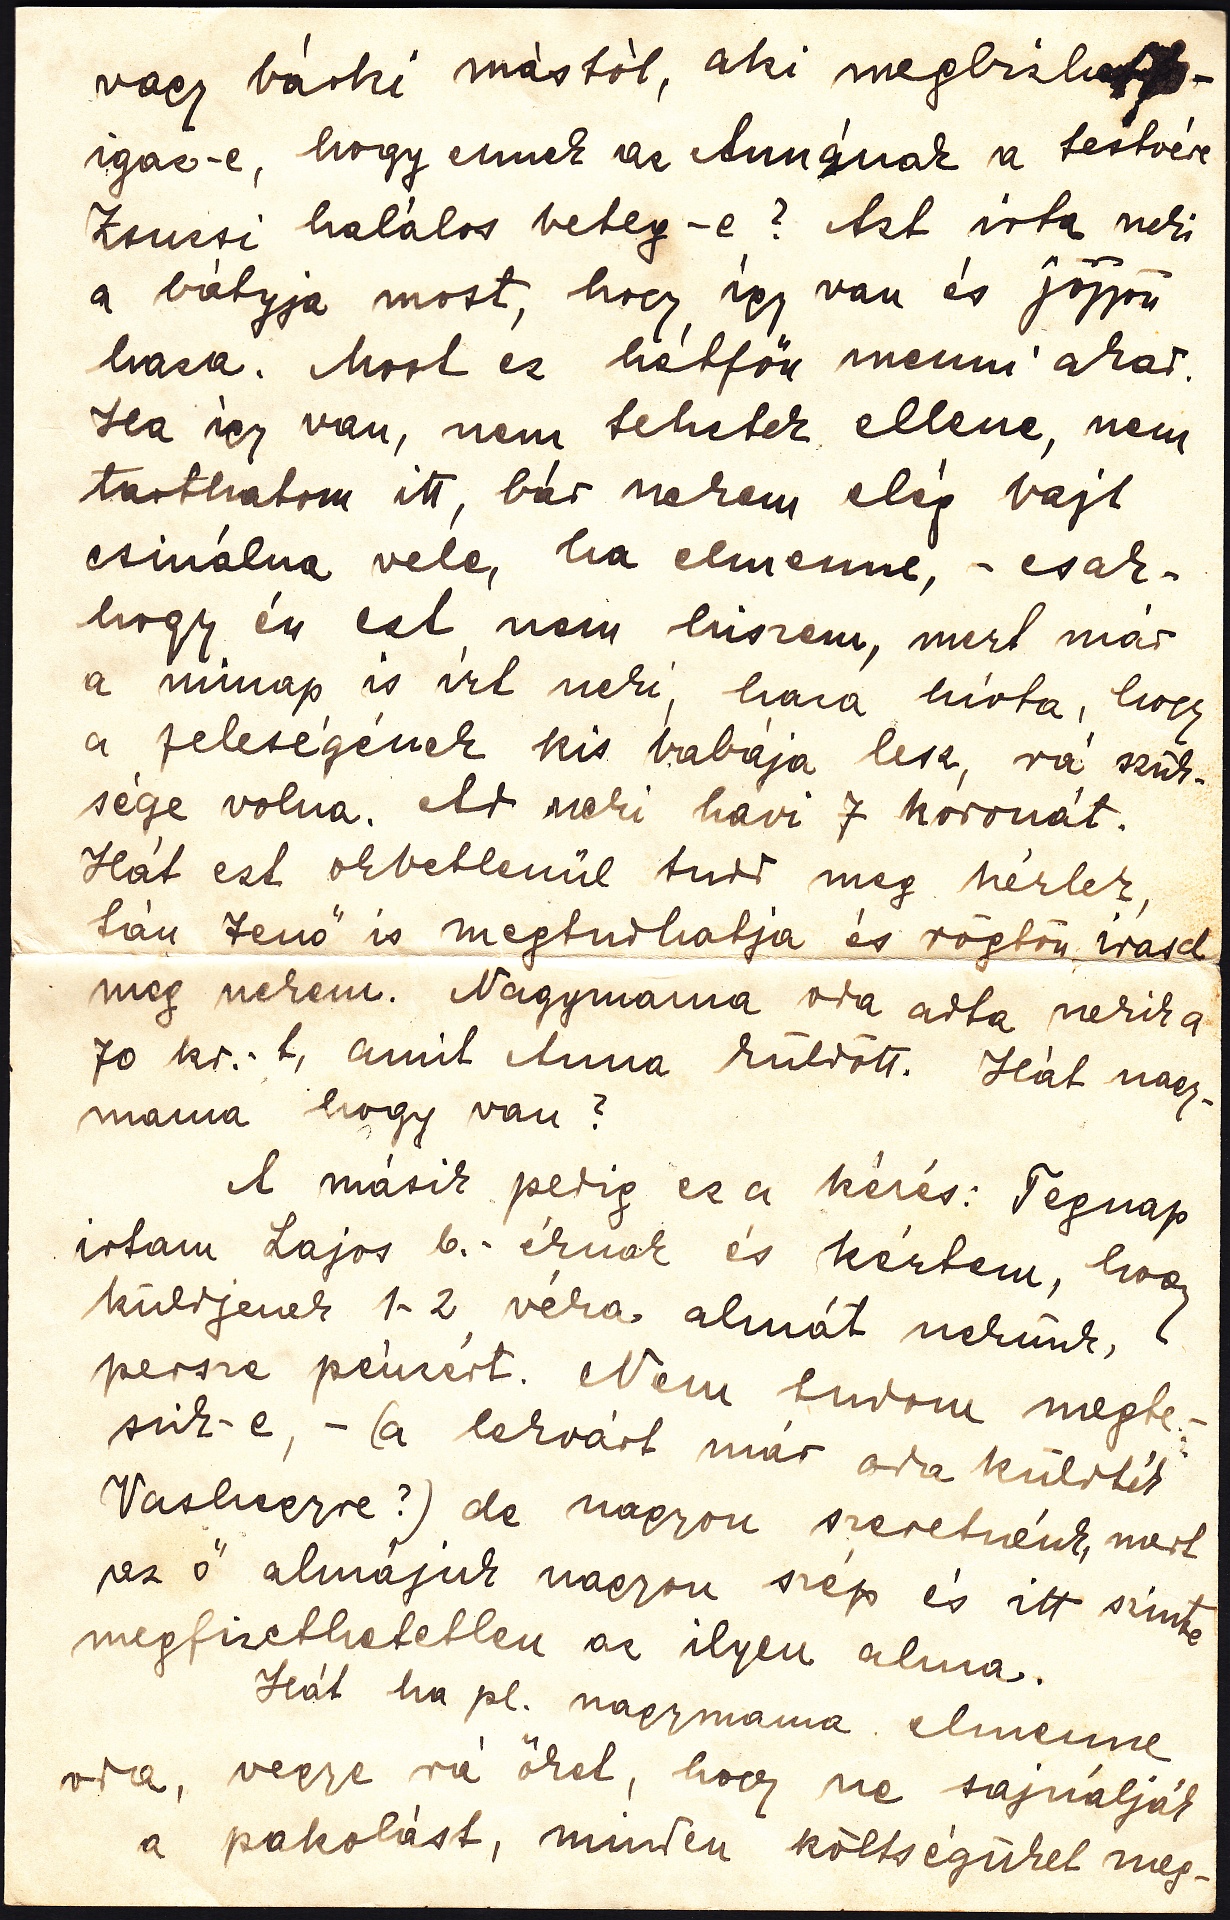 vagy bárki mástól, aki megbízható-
igaz-e, hogy ennek az Annának a testvére
Zsuzsi halálos beteg-e? Azt írta neki
a bátyja most, hogy így van és jöjjön
haza. Most ez hétfőn menni akar.
Ha így van, nem tehetek ellene, nem
tarthatom itt, bár nekem elég bajt
csinálna vele, ha elmenne, - csak-
hogy én ezt nem hiszem, mert már
a minap is írt neki, haza hívta, hogy
a feleségének kis babája lesz, rá szük-
sége volna. Ad neki havi 7 koronát.
Hát ezt okvetlenül tudd meg kérlek,
tán Jenő is megtudhatja és rögtön írasd
meg nekem. Nagymama oda adta nekik a
70 kr.-t, amit Anna küldött. Hát nagy-
mama hogy van?
A másik pedig ez a kérés: Tegnap
irtam Lajos b.-éknak és kértem, hogy
küldjenek 1-2 véka almát nekünk,
persze pénzért. Nem tudom megte-
szik-e, - (a lekvárt már oda küldték
Vashegyre?) de nagyon szeretnénk, mert
az ő almájuk nagyon szép és itt szinte
megfizethetetlen az ilyen alma.
Hát ha pl. nagymama elmenne
oda, vegye rá őket, hogy ne sajnálják
a pakolást, minden költségüket meg-